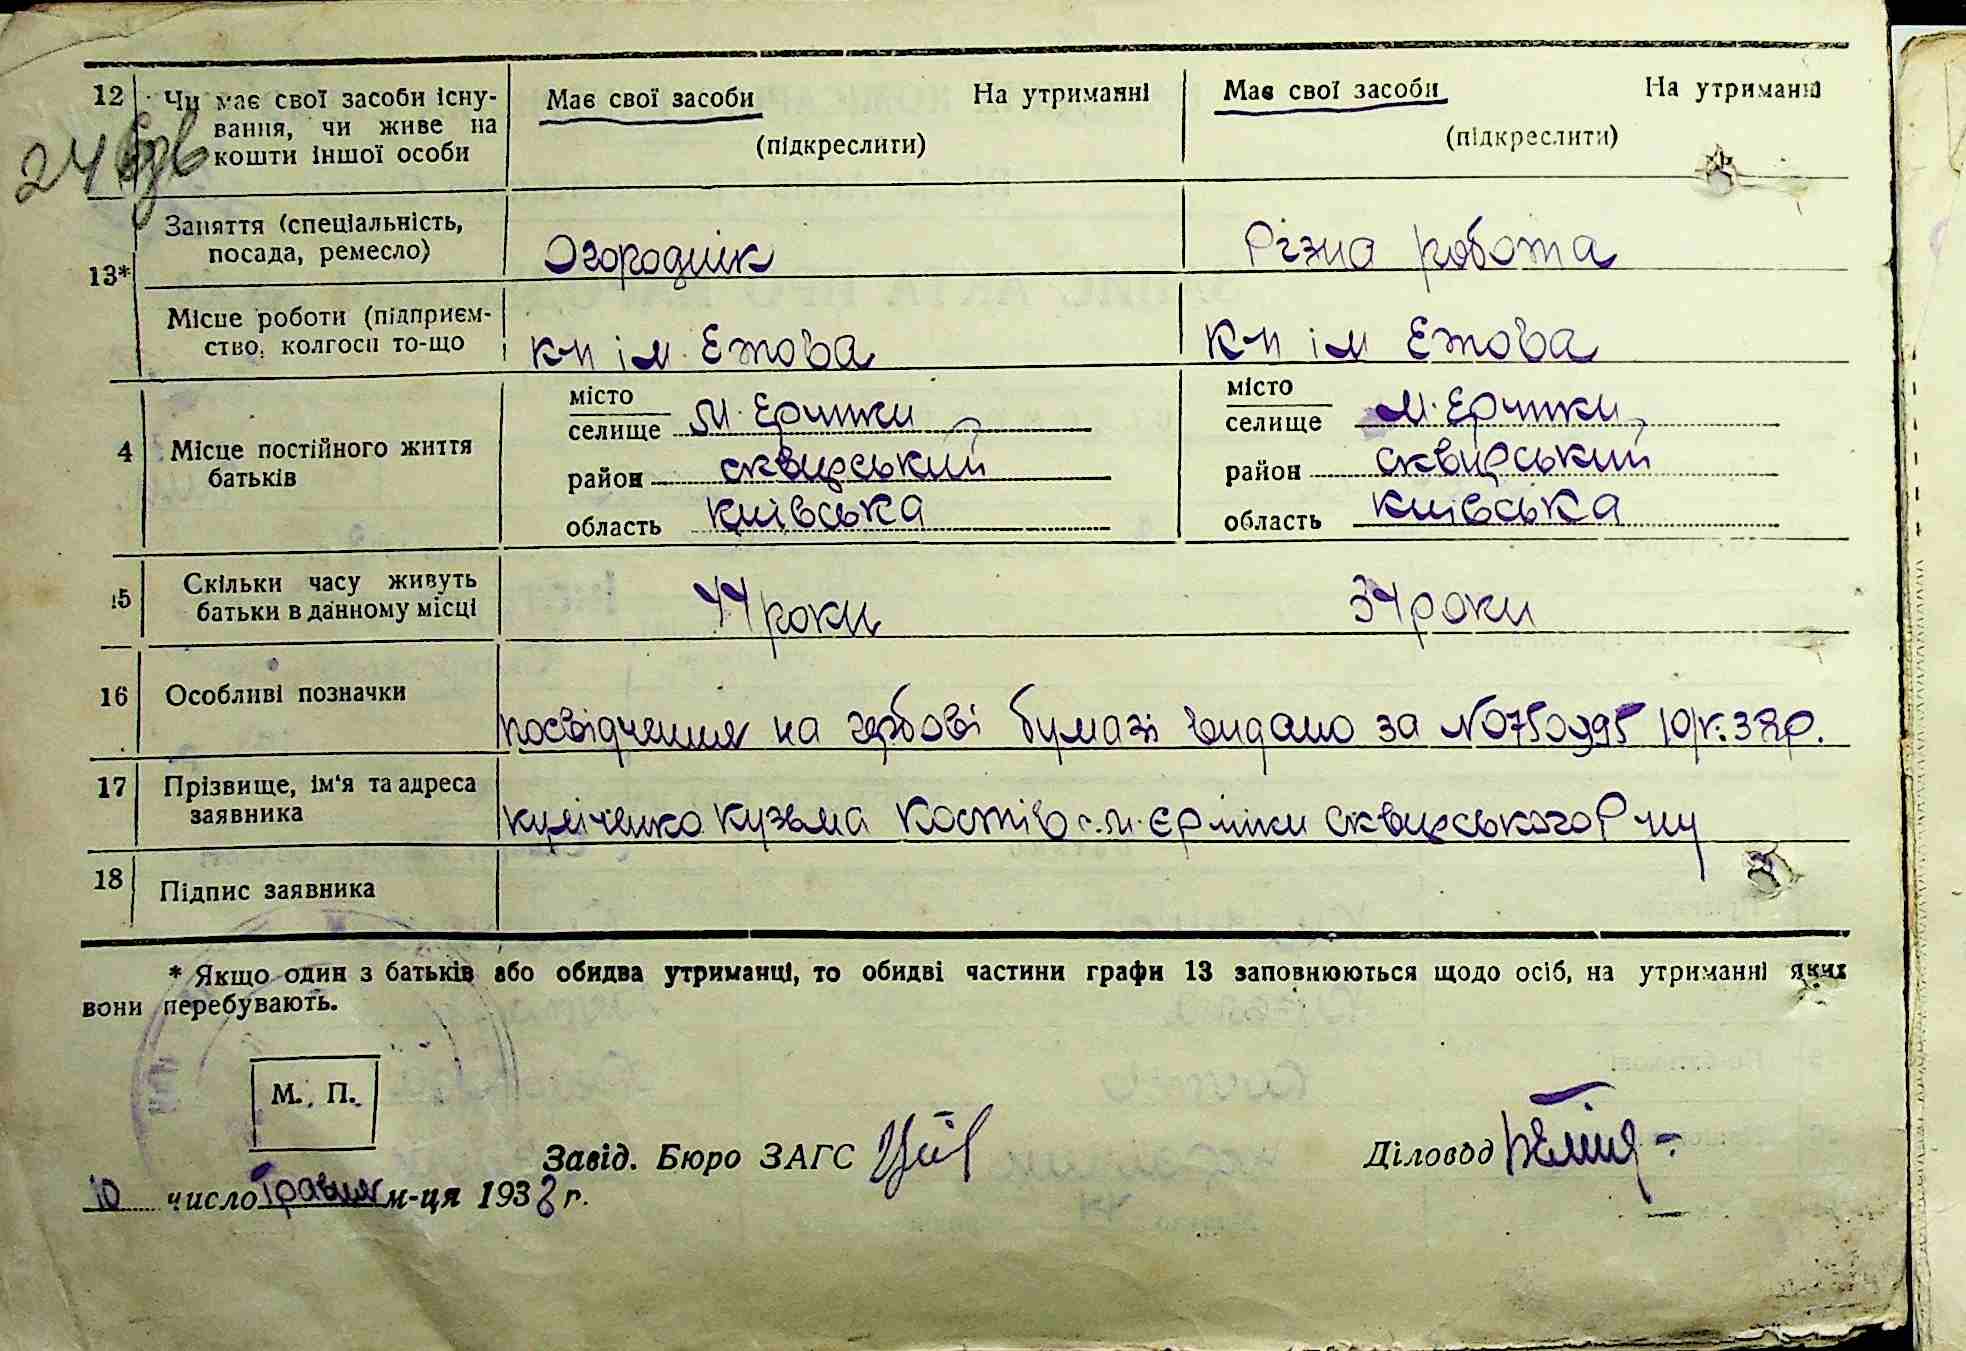 12 Чи має свої засоби існу-
вання, чи живе на
кошти іншої особи
Має свої засоби На утриманні
(підкреслити)
Має свої засоби На утриманні
(підкреслити)
24
13* Заняття (спеціальність,
посада, ремесло)
Огороднік
Різна робота
Місце роботи (підприєм-
ство, колгосп то-що
кп ім. Ежова
кп ім Ежова
4 Місце постійного життя
батьків
місто
селище м. Ерчики
район сквирський
область київська
місто
селище м. Ерчики
район сквирський
область київська
15 Скільки часу живуть
батьки в данному місці
44 роки
34 роки
16 Особливі позначки
посвідчення на гербові бумазі видано за № 0750995 10/V. 38р.
17 Прізвище, ім'я та адреса
заявника
Куліченко Кузьма Костів с. м. Єрчіки Сквирського Р-ну
18 Підпис заявника
* Якщо один з батьків або обидва утриманці, то обидві частини графи 13 заповнюються щодо осіб, на утриманні яких
вони перебувають.
М. П.
Завід. Бюро ЗАГС
Діловод
10 число Травня м-ця 1938 г.